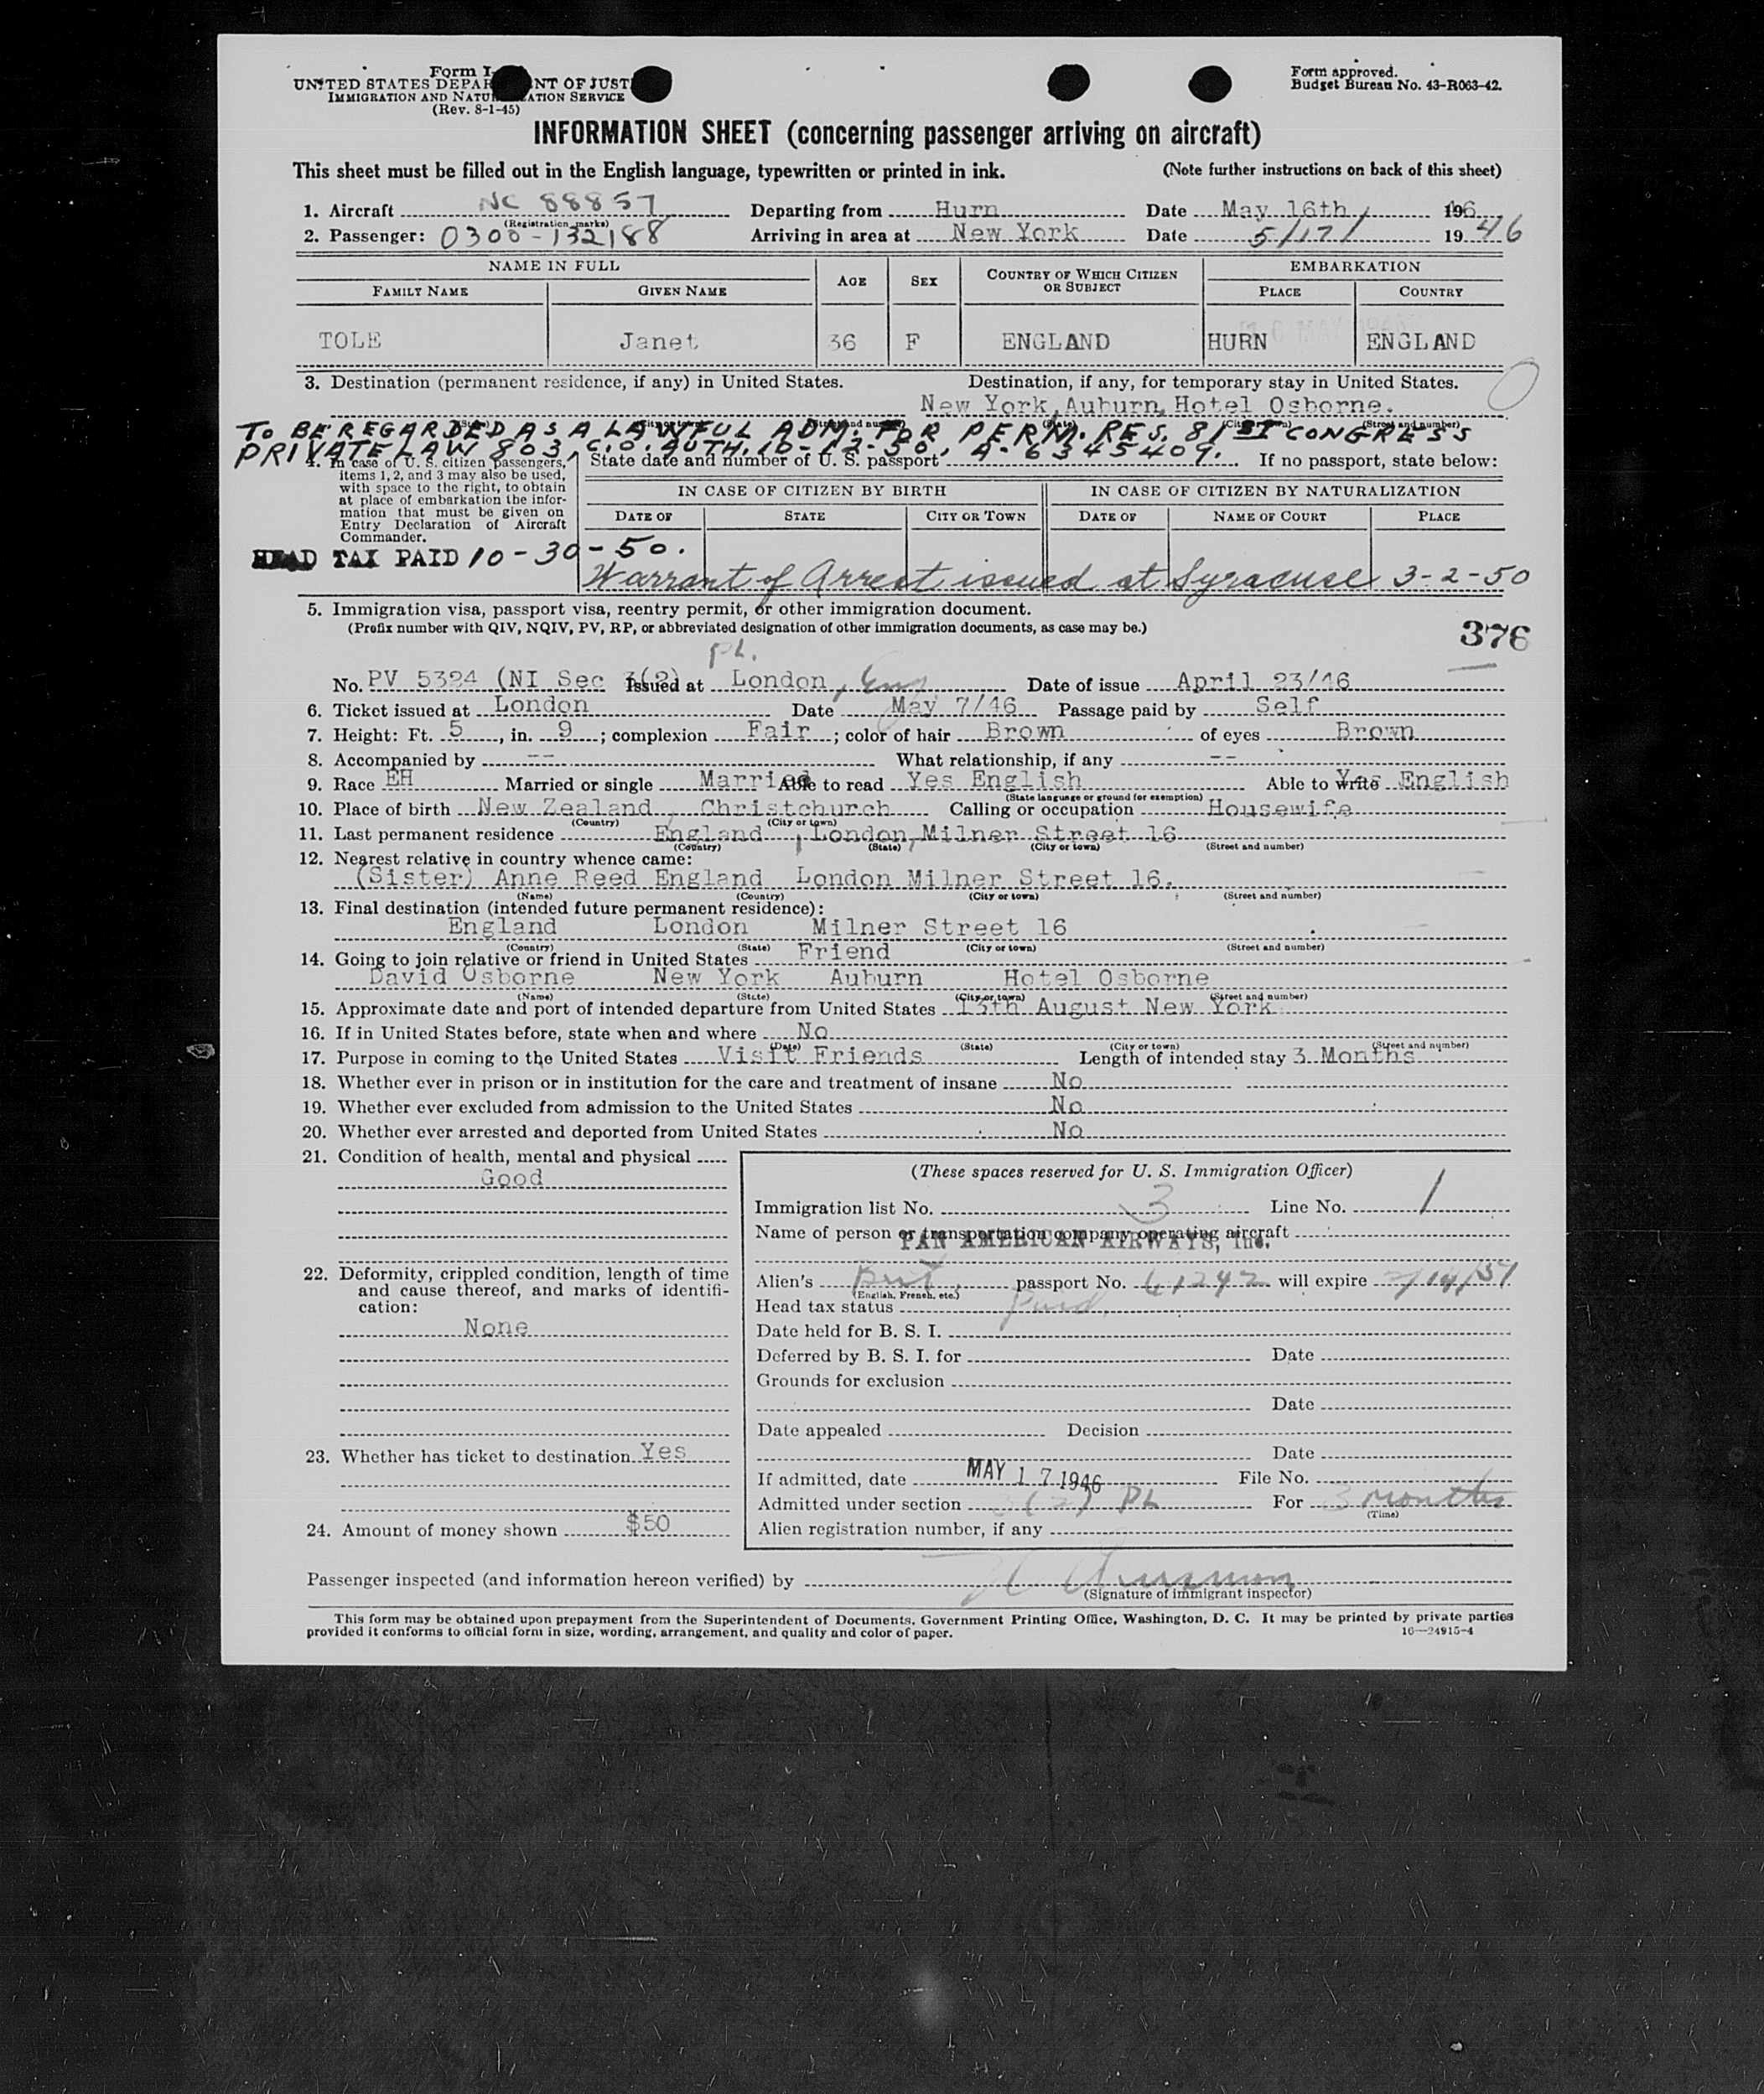 Form I-
UNITED STATES DEPAR NT OF JUST
IMMIGRATION AND NATU ATION SERVICE
(Rev. 8-1-45)
Form approved.
Budget Bureau No. 43-R063-42.
INFORMATION SHEET (concerning passenger arriving on aircraft)
This sheet must be filled out in the English language, typewritten or printed in ink. (Note further instructions on back of this sheet)
1. Aircraft NC 88857 Departing from Hurn Date May 16th, 1946
(Registration marks)
2. Passenger: 0300-132188 Arriving in area at New York Date 5/17/ 1946
NAME IN FULL AGE SEX COUNTRY OF WHICH CITIZEN OR SUBJECT EMBARKATION
FAMILY NAME GIVEN NAME PLACE COUNTRY
TOLE Janet 36 F ENGLAND HURN ENGLAND
3. Destination (permanent residence, if any) in United States. Destination, if any, for temporary stay in United States.
New York, Auburn, Hotel Osborne.
TO BE REGARDED AS A LAWFUL ADM. FOR PERM. RES. 81ST CONGRESS
PRIVATE LAW 803, C.O. AUTH. 10-12-50, A-6345409.
4. In case of U. S. citizen passengers, items 1, 2, and 3 may also be used, with space to the right, to obtain at place of embarkation the information that must be given on Entry Declaration of Aircraft Commander.
State date and number of U. S. passport If no passport, state below:
IN CASE OF CITIZEN BY BIRTH IN CASE OF CITIZEN BY NATURALIZATION
DATE OF STATE CITY OR TOWN DATE OF NAME OF COURT PLACE
HEAD TAX PAID 10-30-50.
Warrant of Arrest issued at Syracuse 3-2-50
5. Immigration visa, passport visa, reentry permit, or other immigration document.
(Prefix number with QIV, NQIV, PV, RP, or abbreviated designation of other immigration documents, as case may be.)
376
PL.
No. PV 5324 (NI Sec 3(2) Issued at London, Eng. Date of issue April 23/46
6. Ticket issued at London Date May 7/46 Passage paid by Self
7. Height: Ft. 5, in. 9; complexion Fair; color of hair Brown of eyes Brown
8. Accompanied by -- What relationship, if any --
9. Race EH Married or single Married Able to read Yes English Able to write Yes English
(State language or ground for exemption)
10. Place of birth New Zealand, Christchurch Calling or occupation Housewife
(Country) (City or town)
11. Last permanent residence England, London, Milner Street 16
(Country) (State) (City or town) (Street and number)
12. Nearest relative in country whence came:
(Sister) Anne Reed England London Milner Street 16.
(Name) (Country) (City or town) (Street and number)
13. Final destination (intended future permanent residence):
England London Milner Street 16
(Country) (State) (City or town) (Street and number)
14. Going to join relative or friend in United States Friend
David Osborne New York Auburn Hotel Osborne
(Name) (State) (City or town) (Street and number)
15. Approximate date and port of intended departure from United States 13th August New York
16. If in United States before, state when and where No
(Date) (State) (City or town) (Street and number)
17. Purpose in coming to the United States Visit Friends Length of intended stay 3 Months
18. Whether ever in prison or in institution for the care and treatment of insane No
19. Whether ever excluded from admission to the United States No
20. Whether ever arrested and deported from United States No
21. Condition of health, mental and physical
Good
22. Deformity, crippled condition, length of time and cause thereof, and marks of identification:
None
23. Whether has ticket to destination Yes
24. Amount of money shown $50
(These spaces reserved for U. S. Immigration Officer)
Immigration list No. 3 Line No. 1
Name of person or transportation company operating aircraft
PAN AMERICAN AIRWAYS, Inc.
Alien's Brit. passport No. 41242 will expire
(English, French, etc.)
Head tax status Paid
Date held for B. S. I.
Deferred by B. S. I. for Date
Grounds for exclusion
Date
Date appealed Decision
Date
If admitted, date MAY 17 1946 File No.
Admitted under section 3(2) PL For 3 months
(Time)
Alien registration number, if any
Passenger inspected (and information hereon verified) by
(Signature of immigrant inspector)
This form may be obtained upon prepayment from the Superintendent of Documents, Government Printing Office, Washington, D. C. It may be printed by private parties
provided it conforms to official form in size, wording, arrangement, and quality and color of paper. 16—24915-4